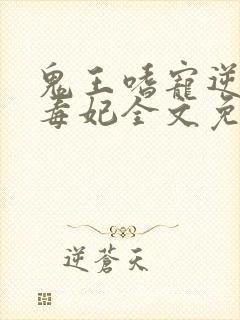 鬼王嗜寵逆
毒妃全文免
逆蒼天